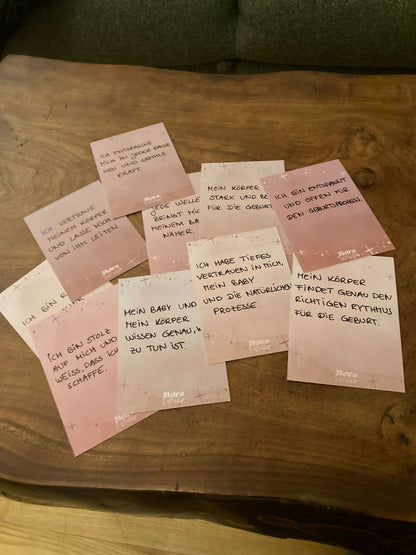 ICH ENTSPANKE
MICH IN JEDER PAUSE
NEU UND SAMMLE
KRAFT.
Metra
ICH VERTRAUE
MEINEM KÖRPER
UND LASSE MICH
VON IHM LEITEN
Metra
JEDE WELLE
BRINGT MICH
MEINEM BA
NÄHER.
MEIN KÖRPER
STARK UND BE
FÜR DIE GEBURT.
ICH BIN ENTSPANNT
UND OFFEN FÜR
DEN GEBURTSPROZESS.
Metra
ICH BIN
ICH BIN STOLZ
AUF MICH UND
WEISS, DASS ICH
SCHAFFE.
MEIN BABY UND
MEIN KÖRPER
WISSEN GENAU,
ZU TUN IST.
Metra
ICH HABE TIEFES
VERTRAUEN IN MICH,
MEIN BABY
UND DIE NATÜRLICHEN
PROZESSE.
Metra
MEIN KÖRPER
FINDET GENAU DEN
RICHTIGEN RYTHMUS
FÜR DIE GEBURT.
Metra